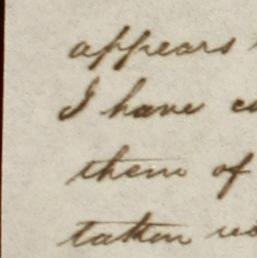 appears
I have
them of
taken